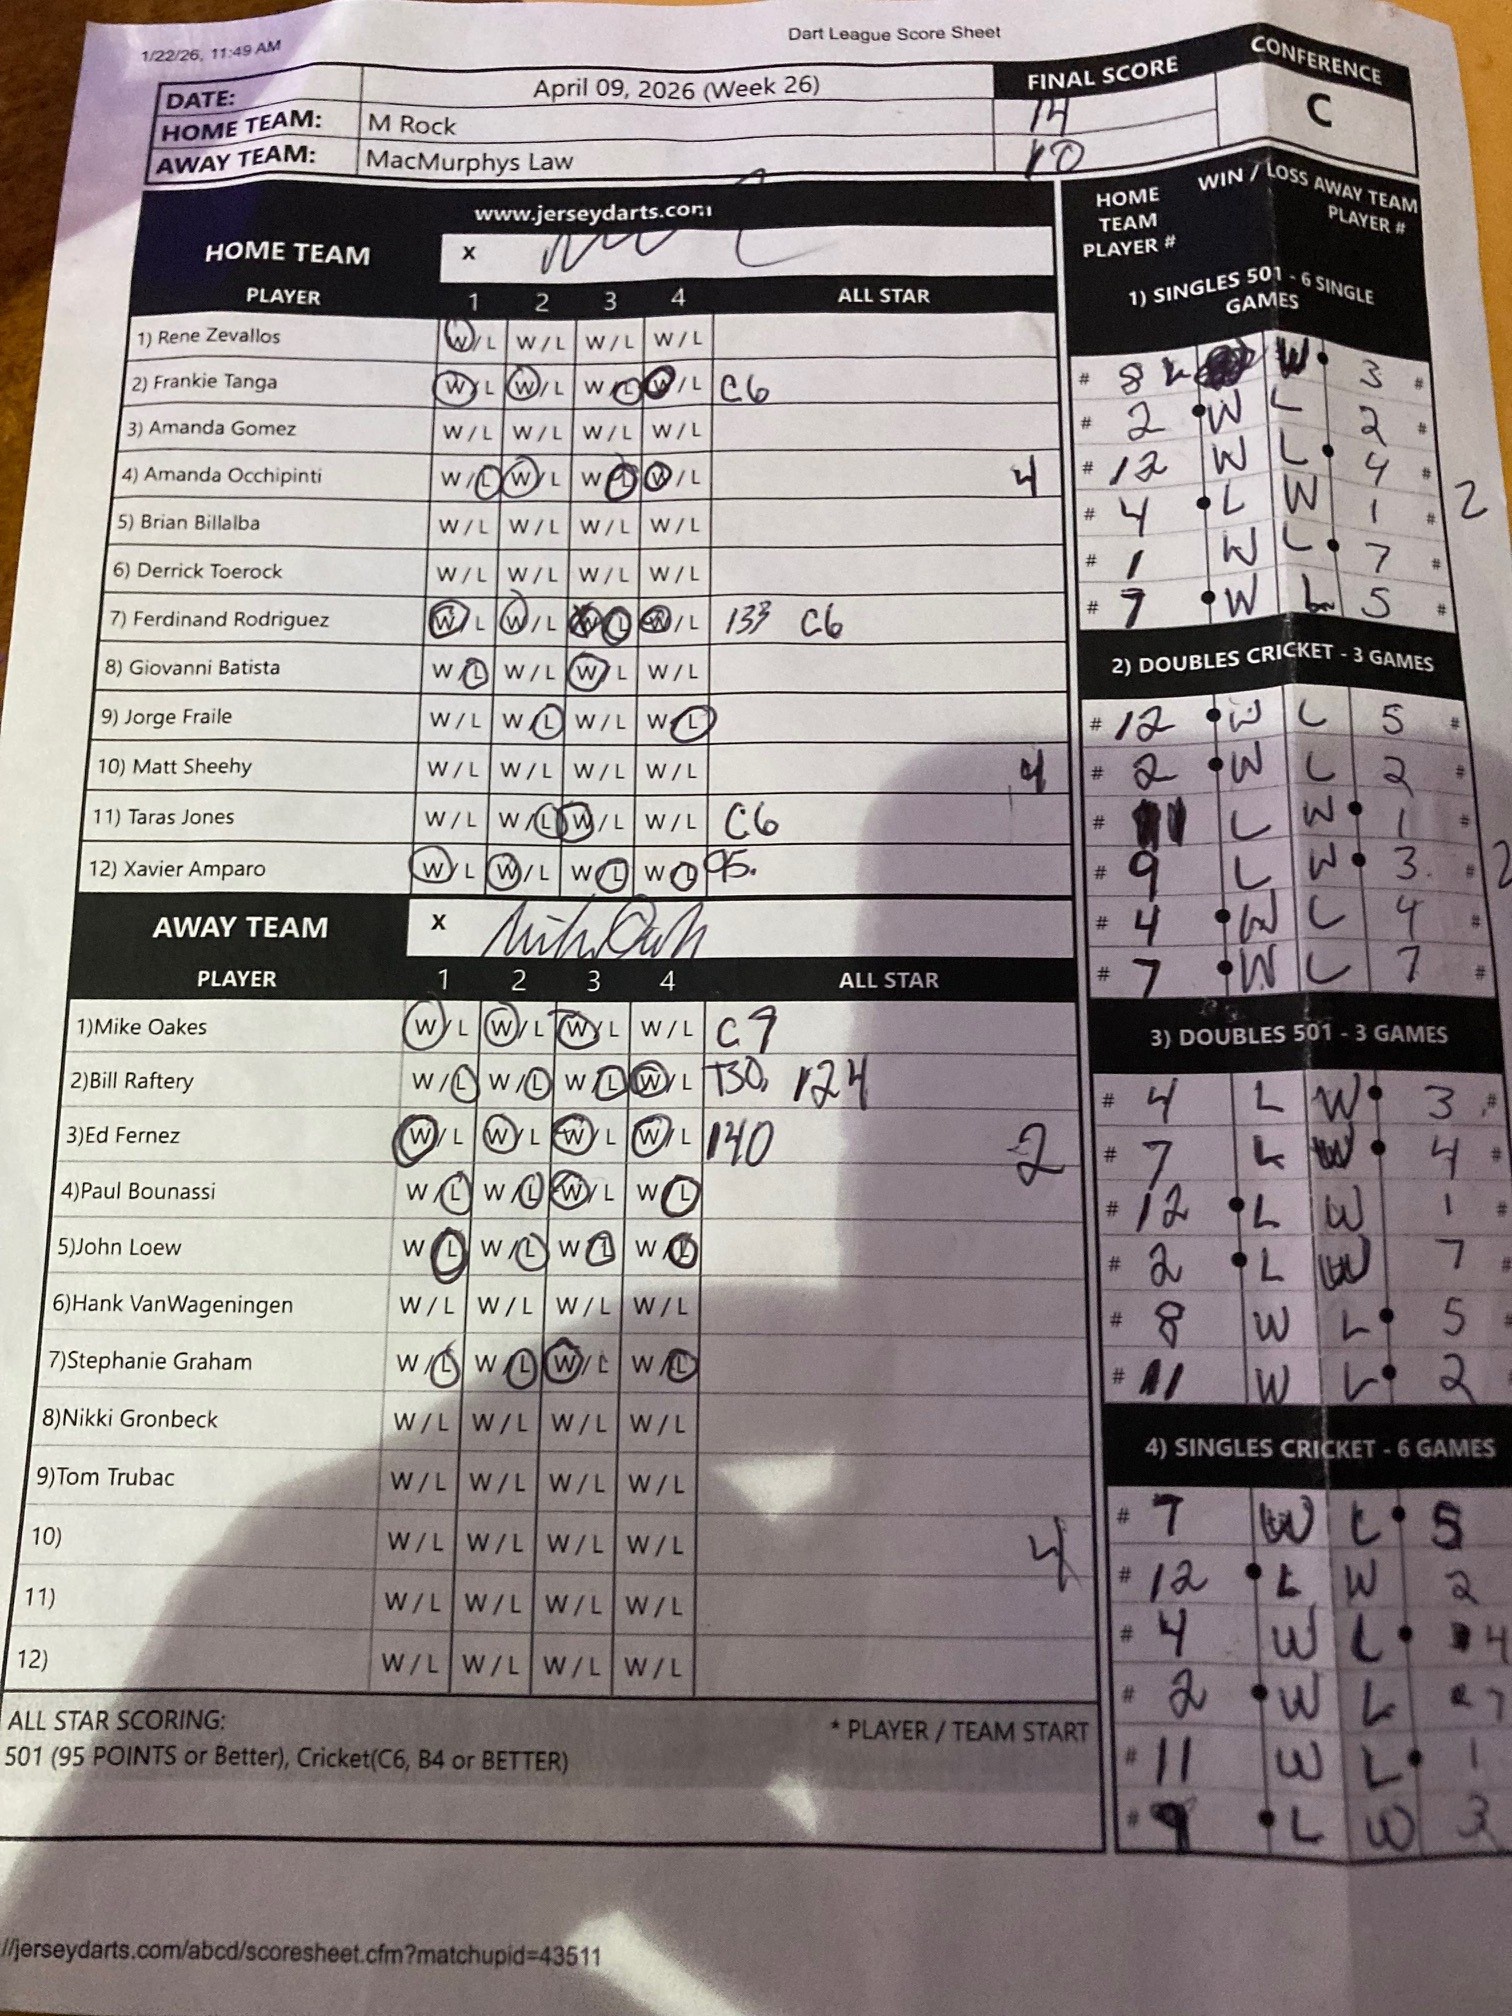 1/22/26, 11:49 AM
Dart League Score Sheet
DATE: April 09, 2026 (Week 26) FINAL SCORE CONFERENCE
HOME TEAM: M Rock 14 C
AWAY TEAM: MacMurphys Law 10
www.jerseydarts.com
HOME TEAM x
PLAYER 1 2 3 4 ALL STAR
1) Rene Zevallos W/L W/L W/L W/L
2) Frankie Tanga W/L W/L W/L W/L C6
3) Amanda Gomez W/L W/L W/L W/L
4) Amanda Occhipinti W/L W/L W/L W/L 4
5) Brian Billalba W/L W/L W/L W/L
6) Derrick Toerock W/L W/L W/L W/L
7) Ferdinand Rodriguez W/L W/L W/L W/L 133 C6
8) Giovanni Batista W/L W/L W/L W/L
9) Jorge Fraile W/L W/L W/L W/L
10) Matt Sheehy W/L W/L W/L W/L 4
11) Taras Jones W/L W/L W/L W/L C6
12) Xavier Amparo W/L W/L W/L W/L 95.
AWAY TEAM x
PLAYER 1 2 3 4 ALL STAR
1)Mike Oakes W/L W/L W/L W/L C9
2)Bill Raftery W/L W/L W/L W/L 130, 124
3)Ed Fernez W/L W/L W/L W/L 140 2
4)Paul Bounassi W/L W/L W/L W/L
5)John Loew W/L W/L W/L W/L
6)Hank VanWageningen W/L W/L W/L W/L
7)Stephanie Graham W/L W/L W/L W/L
8)Nikki Gronbeck W/L W/L W/L W/L
9)Tom Trubac W/L W/L W/L W/L
10) W/L W/L W/L W/L 4
11) W/L W/L W/L W/L
12) W/L W/L W/L W/L
ALL STAR SCORING:
501 (95 POINTS or Better), Cricket(C6, B4 or BETTER)
* PLAYER / TEAM START
HOME TEAM PLAYER # WIN / LOSS AWAY TEAM PLAYER #
1) SINGLES 501 - 6 SINGLE GAMES
# 8 L W 3 #
# 2 W L 2 #
# 12 W L 4 #
# 4 L W 1 # 2
# 1 W L 7 #
# 7 W L 5 #
2) DOUBLES CRICKET - 3 GAMES
# 12 W L 5 #
# 2 W L 2 #
# 11 L W 1 #
# 9 L W 3. # 2
# 4 W L 4 #
# 7 W L 7 #
3) DOUBLES 501 - 3 GAMES
# 4 L W 3 #
# 7 L W 4 #
# 12 L W 1 #
# 2 L W 7 #
# 8 W L 5 #
# 11 W L 2
4) SINGLES CRICKET - 6 GAMES
# 7 W L 5
# 12 L W 2
# 4 W L 4
# 2 W L 7
# 11 W L 1
# 9 L W 3
//jerseydarts.com/abcd/scoresheet.cfm?matchupid=43511